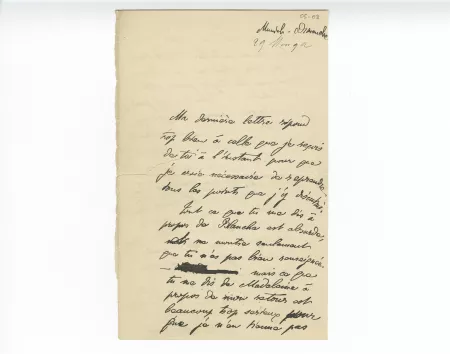 Munich. Dimanche
29
Ma dernière lettre répond
trop bien à celle que je reçois
de toi à l'instant pour que
je croie nécessaire de reprendre
tous les points que j'y discutais
Tout ce que tu me dis à
propos de Blanche est absurde,
me montre seulement
que tu n'es pas bien renseigné.
— mais ce que
tu me dis de Madeleine à
propos de mon retour est
beaucoup trop sérieux pour
que je n'en tienne pas